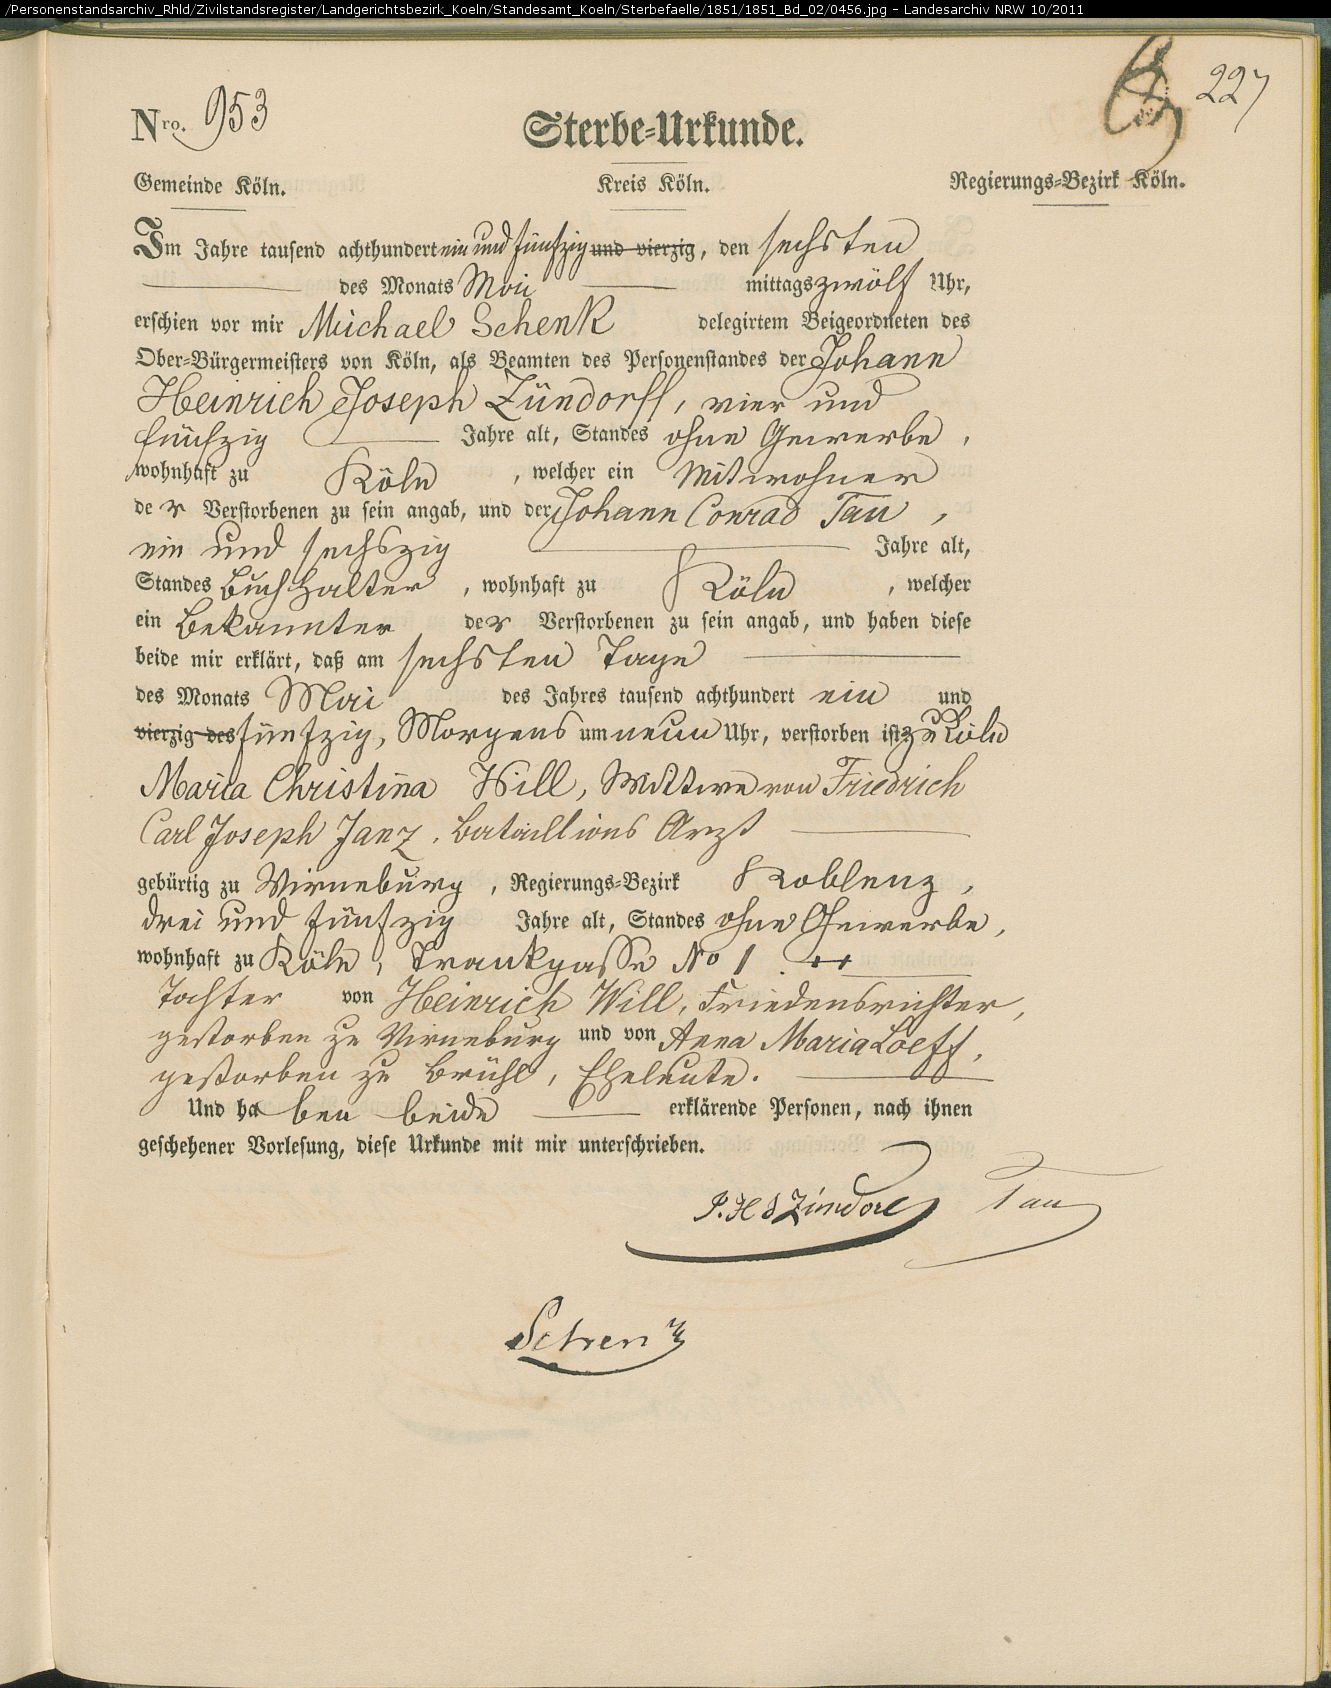 /Personenstandsarchiv_Rhld/Zivilstandsregister/Landgerichtsbezirk_Koeln/Standesamt_Koeln/Sterbefaelle/1851/1851_Bd_02/0456.jpg - Landesarchiv NRW 10/2011
227
Nro. 953
Sterbe=Urkunde.
Gemeinde Köln. Kreis Köln. Regierungs=Bezirk Köln.
Im Jahre tausend achthundert ein und fünfzig und vierzig, den sechsten
des Monats Mai mittags zwölf Uhr,
erschien vor mir Michael Schenk delegirtem Beigeordneten des
Ober=Bürgermeisters von Köln, als Beamten des Personenstandes der Johann
Heinrich Joseph Zündorff, vier und
fünfzig Jahre alt, Standes ohne Gewerbe,
wohnhaft zu Köln, welcher ein Mitwohner
der Verstorbenen zu sein angab, und der Johann Conrad Tau,
ein und sechszig Jahre alt,
Standes Buchhalter, wohnhaft zu Köln, welcher
ein Bekannter der Verstorbenen zu sein angab, und haben diese
beide mir erklärt, daß am sechsten Tage
des Monats Mai des Jahres tausend achthundert ein und
vierzig des fünfzig, Morgens um neun Uhr, verstorben ist zu Köln
Maria Christina Will, Wittwe von Friedrich
Carl Joseph Janz, Bataillions Arzt
gebürtig zu Virneburg, Regierungs=Bezirk Koblenz,
drei und fünfzig Jahre alt, Standes ohne Gewerbe,
wohnhaft zu Köln, Trankgasse No 1.
Tochter von Heinrich Will, Friedensrichter,
gestorben zu Virneburg und von Anna Maria Loeff,
gestorben zu Brühl, Eheleute.
Und haben beide erklärende Personen, nach ihnen
geschehener Vorlesung, diese Urkunde mit mir unterschrieben.
J. H J Zündorff Tau
Schenk